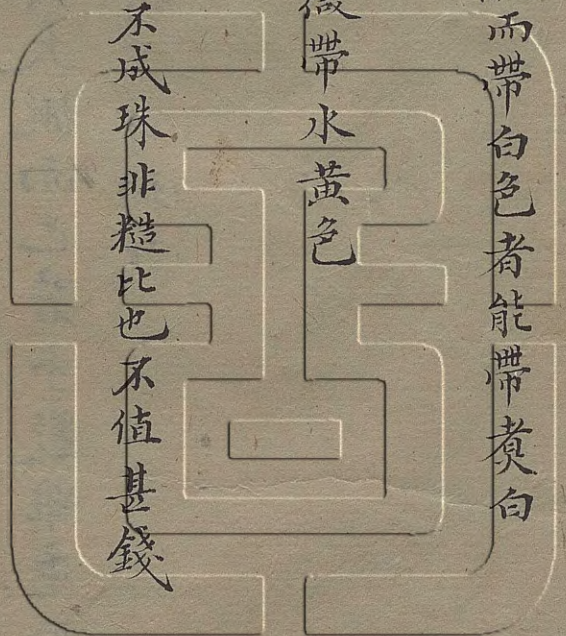 而帶白色者能帶煑白
帶水黃色
不成珠非糙比也不值甚錢